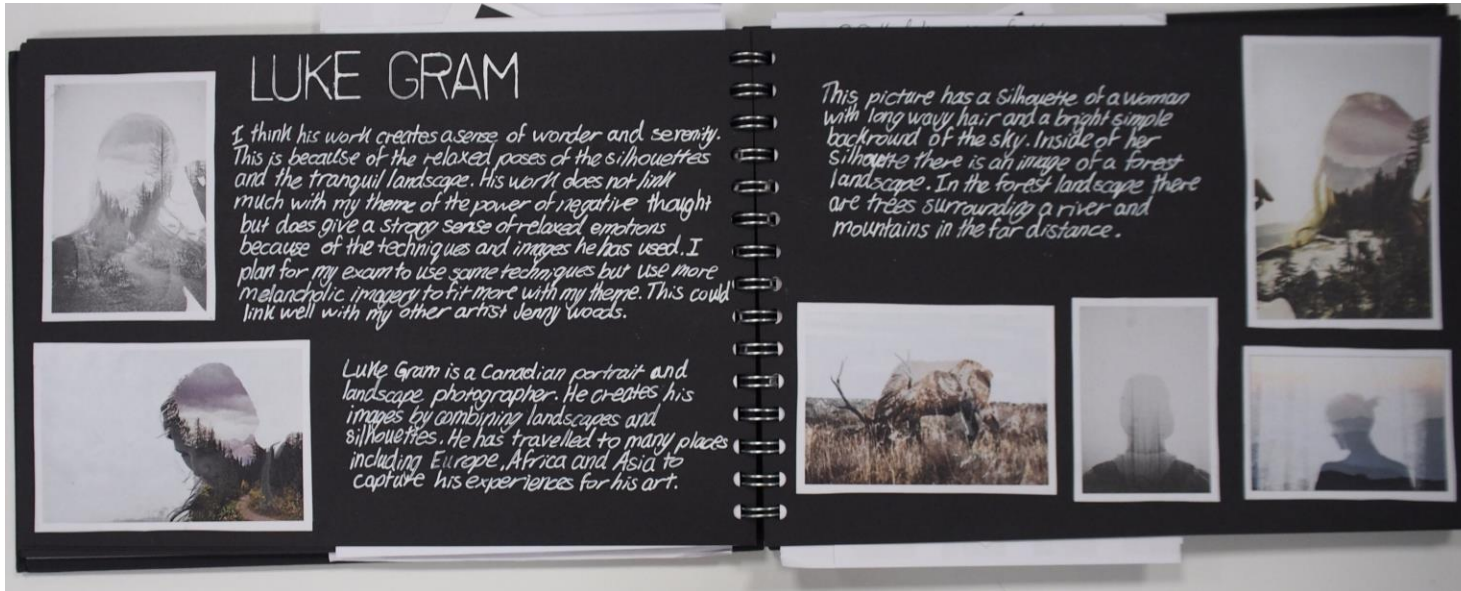 LUKE GRAM
I think his work creates a sense of wonder and serenity.
This is because of the relaxed poses of the silhouettes
and the tranquil landscape. His work does not link
much with my theme of the power of negative thought
but does give a strong sense of relaxed emotions
because of the techniques and images he has used. I
plan for my exam to use same techniques but use more
melancholic imagery to fit more with my theme. This could
link well with my other artist Jenny Woods.
Luke Gram is a Canadian portrait and
landscape photographer. He creates his
images by combining landscapes and
silhouettes. He has travelled to many places
including Europe, Africa and Asia to
capture his experiences for his art.
This picture has a Silhouette of a woman
with long wavy hair and a bright simple
backround of the sky. Inside of her
Silhouette there is an image of a forest
landscape. In the forest landscape there
are trees surrounding a river and
mountains in the far distance.